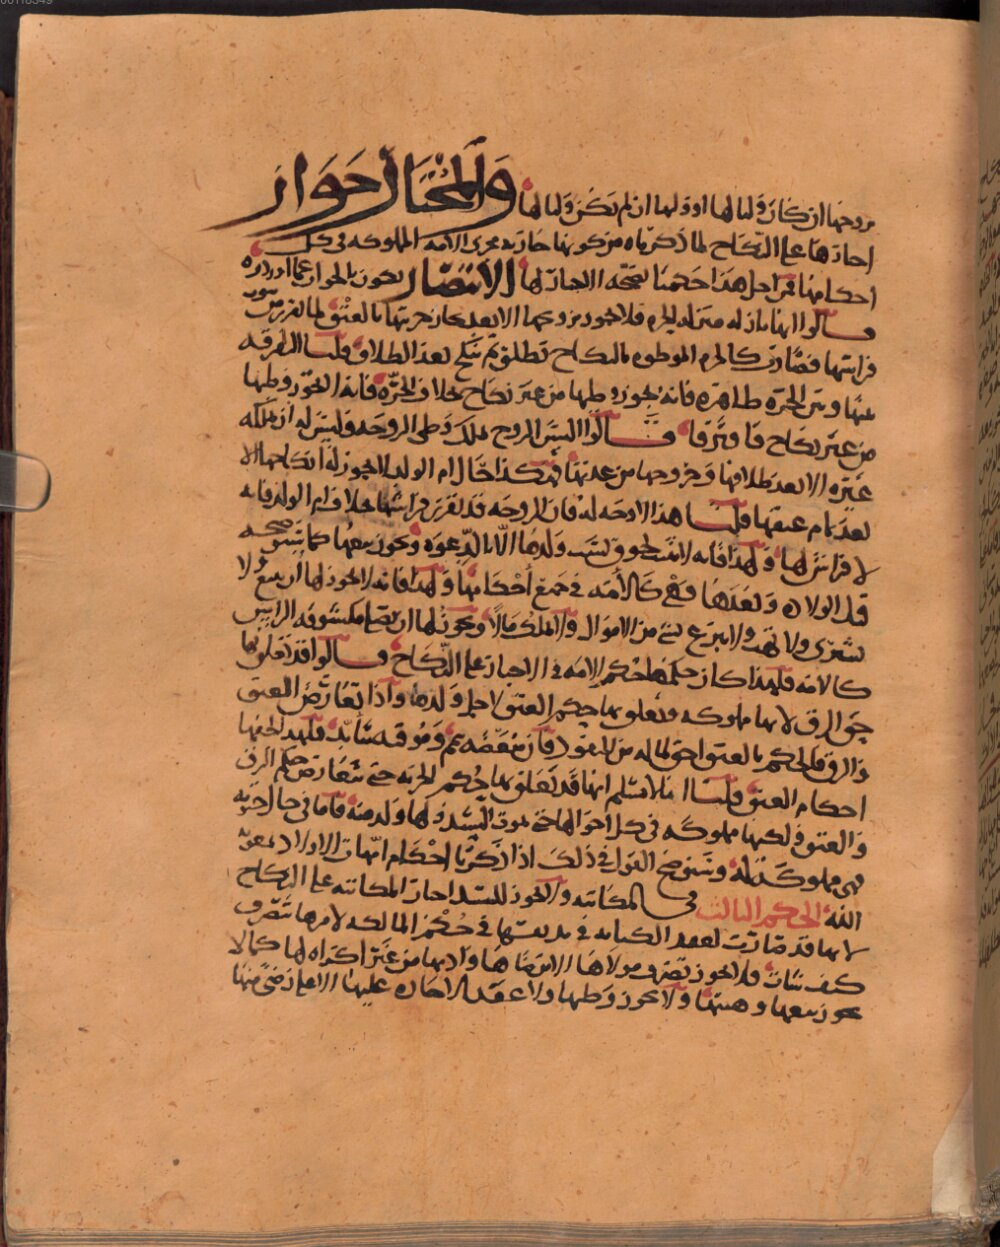 زوجها ان كان وليا لها او وليها ان لم يكن وليا لها والمختار جواز
اجازها على النكاح لما ذكرناه من كونها جاريه مجرى الامه المملوكه في كل
احكامها فمن اجل هذا حكمنا بصحه الاجازه لها الانتصار يكون بالجواب عما اوردوه
قالوا انها نازله منزله الحره فلا يجوز تزوجها الا بعد حريتها بالعتق لما تقرر من
فراشها فصارت كالحره الموطوه بالنكاح تطلق ثم تنكح بعد الطلاق قلنا التفرقه
بينها وبين الحره ظاهره فانه يجوز وطيها من غير نكاح بخلاف الحره فانه لا يجوز وطيها
من غير نكاح فافترقا قالوا اليس الزوج يملك وطى الزوجه وليس له ان يملكه
غيره الا بعد طلاقها وخروجها من عدتها فهكذا حال ام الولد لا يجوز له انكاحها الا
بعد تمام عتقها قلنا هذا لا وجه له فان الزوجه قد تقرر فراشها بخلاف ام الولد فانه
لا فراش لها ولهذا فانه لا يلحق نسب ولدها الا بالدعوه ويجوز بيعها كما سنوضحه
قبل الولاده وبعدها فهي كالامه في جميع احكامها ولهذا فانه لا يجوز لها ان تبيع ولا
تشتري ولا تهب ولا تبرع بشي من الاموال ولا تملك مالا ويجوز لها ان تصلي مكشوفه الراس
كالامه فلهذا كان حكمها حكم الامه في الاجبار على النكاح قالوا قد تعلق بها
حق الرق لانها مملوكه وتعلق بها حكم العتق لاجل ولدها واذا تعارض العتق
والرق فالحكم بالعتق احق لما له من القوه
احكام العتق قلنا انا لا نسلم انها قد تعلق بها حكم الحريه حتى يتعارض حكم الرق
والعتق ولكنها مملوكه في كل احوالها حتى يموت السيد ولها ولد منه فاما في حال حيوته
فهي مملوكه له وسنوضح القول في ذلك اذا ذكرنا احكام امهات الاولاد بمعونه
الله الحكم الثالث في المكاتبه ولا يجوز للسيد اجبار المكاتبه على النكاح
لانها قد صارت بعقد الكتابه في يد نفسها في حكم المالكه لامرها تتصرف
كيف شات فلا يجوز تصرف مولاها الا برضاها واذنها من غير اكراه لها كما لا
يجوز بيعها وهبتها ولا يجوز وطيها ولا عقد الاجاره عليها الا على رضى منها